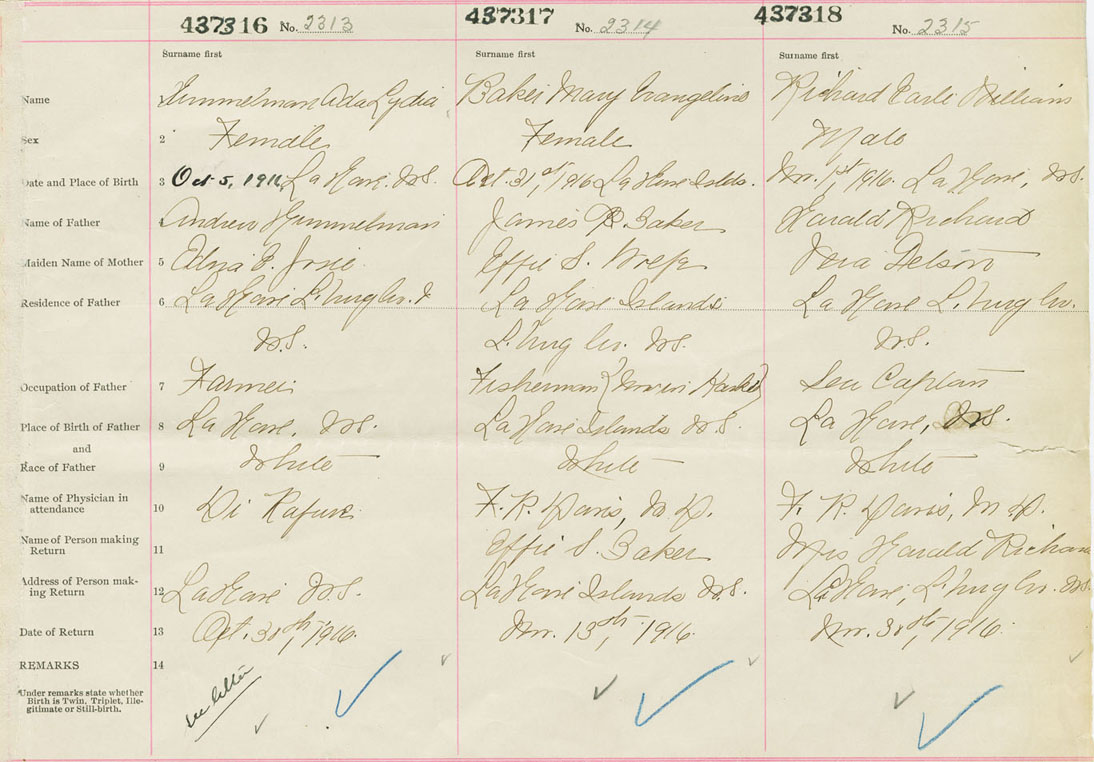 437316 No. 2313 437317 No. 2314 437318 No. 2315
Surname first Surname first Surname first
Name Himmelman Ada Lydia Baker Mary Evangeline Richard Earle William
Sex 2 Female Female Male
Date and Place of Birth 3 Oct 5, 1916 La Have. N.S. Oct. 31st, 1916 La Have Islds. Nov. 1st, 1916. La Have, N.S.
Name of Father 4 Andrew Himmelman James R. Baker Harald Richard
Maiden Name of Mother 5 E. Effie S. Vera
Residence of Father 6 La Have L.'burg Co. La Have Islands La Have L.'burg Co.
N.S. L.'burg Co. N.S. N.S.
Occupation of Father 7 Farmer Fisherman Sea Captan
Place of Birth of Father 8 La Have, N.S. La Have Islands N.S. La Have, N.S.
and
Race of Father 9 White White White
Name of Physician in
attendance 10 F. R. Davis, M.D. F. R. Davis, M.D.
Name of Person making
Return 11 Effie S. Baker Mrs Harald Richard
Address of Person mak-
ing Return 12 La Have N.S. La Have Islands N.S. La Have, L.'burg Co. N.S.
Date of Return 13 Oct. 30th, 1916 Nov. 13th, 1916. Nov. 30th, 1916.
REMARKS 14
Under remarks state whether
Birth is Twin, Triplet, Ille-
gitimate or Still-birth.
see letter